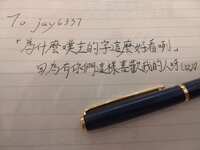 To jay6337
「為什麼噗主的字這麼好看啊」
因為有你們這樣喜歡我的人呀